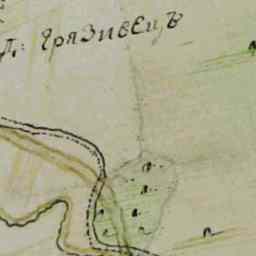 Д: ГрязивецЪ